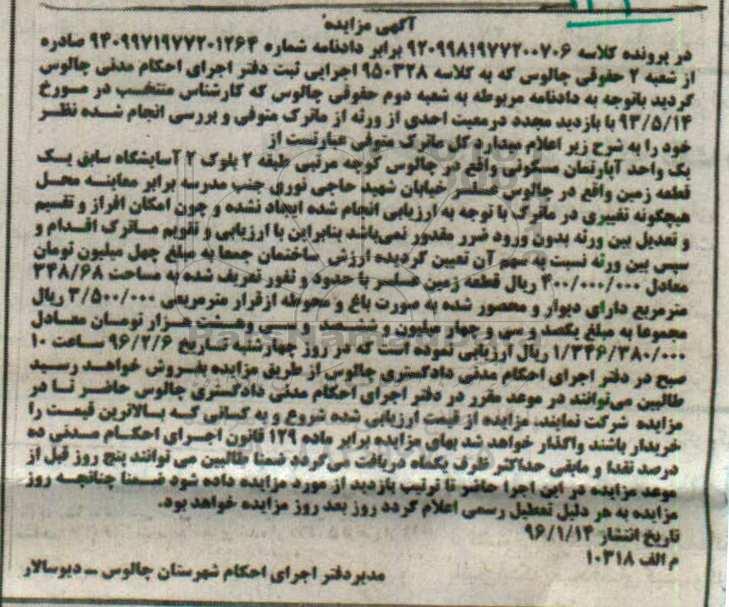 آگهی مزایده
در پرونده کلاسه ۹۲۰۹۹۸۱۹۷۷۲۰۰۷۰۶ برابر دادنامه شماره ۹۴۰۹۹۷۱۹۷۷۲۰۱۲۶۴ صادره
از شعبه ۲ حقوقی چالوس که به کلاسه ۹۵۰۳۲۸ اجرایی ثبت دفتر اجرای احکام مدنی چالوس
گردید باتوجه به دادنامه مربوطه به شعبه دوم حقوقی چالوس که کارشناس منتخب در مورخ
۹۳/۵/۱۴ با بازدید مجدد درمعیت احدی از ورثه از ماترک متوفی و بررسی انجام شده نظر
خود را به شرح زیر اعلام میدارد کل ماترک متوفی عبارتست از
یک واحد آپارتمان مسکونی واقع در چالوس کوچه مرتبی طبقه ۲ بلوک ۲ آسایشگاه سابق یک
قطعه زمین واقع در چالوس خیابان شهید حاجی نوری جنب مدرسه برابر معاینه محل
هیچگونه تغییری در ماترک با توجه به ارزیابی انجام شده ایجاد نشده و چون امکان افراز و تقسیم
و تعدیل بین ورثه بدون ورود ضرر مقدور نمی‌باشد بنابراین با ارزیابی و تقویم ماترک اقدام و
سپس بین ورثه نسبت به سهم آن تعیین گردیده ارزش ساختمان جمعا به مبلغ چهل میلیون تومان
معادل ۴۰۰/۰۰۰/۰۰۰ ریال قطعه زمین با حدود و ثغور تعریف شده به مساحت ۳۴۸/۶۸
مترمربع دارای دیوار و محصور شده به صورت باغ و محوطه ازقرار مترمربعی ۳/۵۰۰/۰۰۰ ریال
مجموعا به مبلغ یکصد و سی و چهار میلیون و ششصد و سی وهشت هزار تومان معادل
۱/۳۴۶/۳۸۰/۰۰۰ ریال ارزیابی نموده است که در روز چهارشنبه تاریخ ۹۶/۲/۶ ساعت ۱۰
صبح در دفتر اجرای احکام مدنی دادگستری چالوس از طریق مزایده بفروش خواهد رسید
طالبین می‌توانند در موعد مقرر در دفتر اجرای احکام مدنی دادگستری چالوس حاضر تا در
مزایده شرکت نمایند، مزایده از قیمت ارزیابی شده شروع و به کسانی که بالاترین قیمت را
خریدار باشند واگذار خواهد شد بهای مزایده برابر ماده ۱۲۹ قانون اجرای احکام مدنی ده
درصد نقدا و مابقی حداکثر ظرف یکماه دریافت می‌گردد ضمنا طالبین می توانند پنج روز قبل از
موعد مزایده در این اجرا حاضر تا ترتیب بازدید از مورد مزایده داده شود ضمنا چنانچه روز
مزایده به هر دلیل تعطیل رسمی اعلام گردد روز بعد روز مزایده خواهد بود.
تاریخ انتشار ۹۶/۱/۱۴
م الف ۱۰۳۱۸
مدیردفتر اجرای احکام شهرستان چالوس ــ دیوسالار